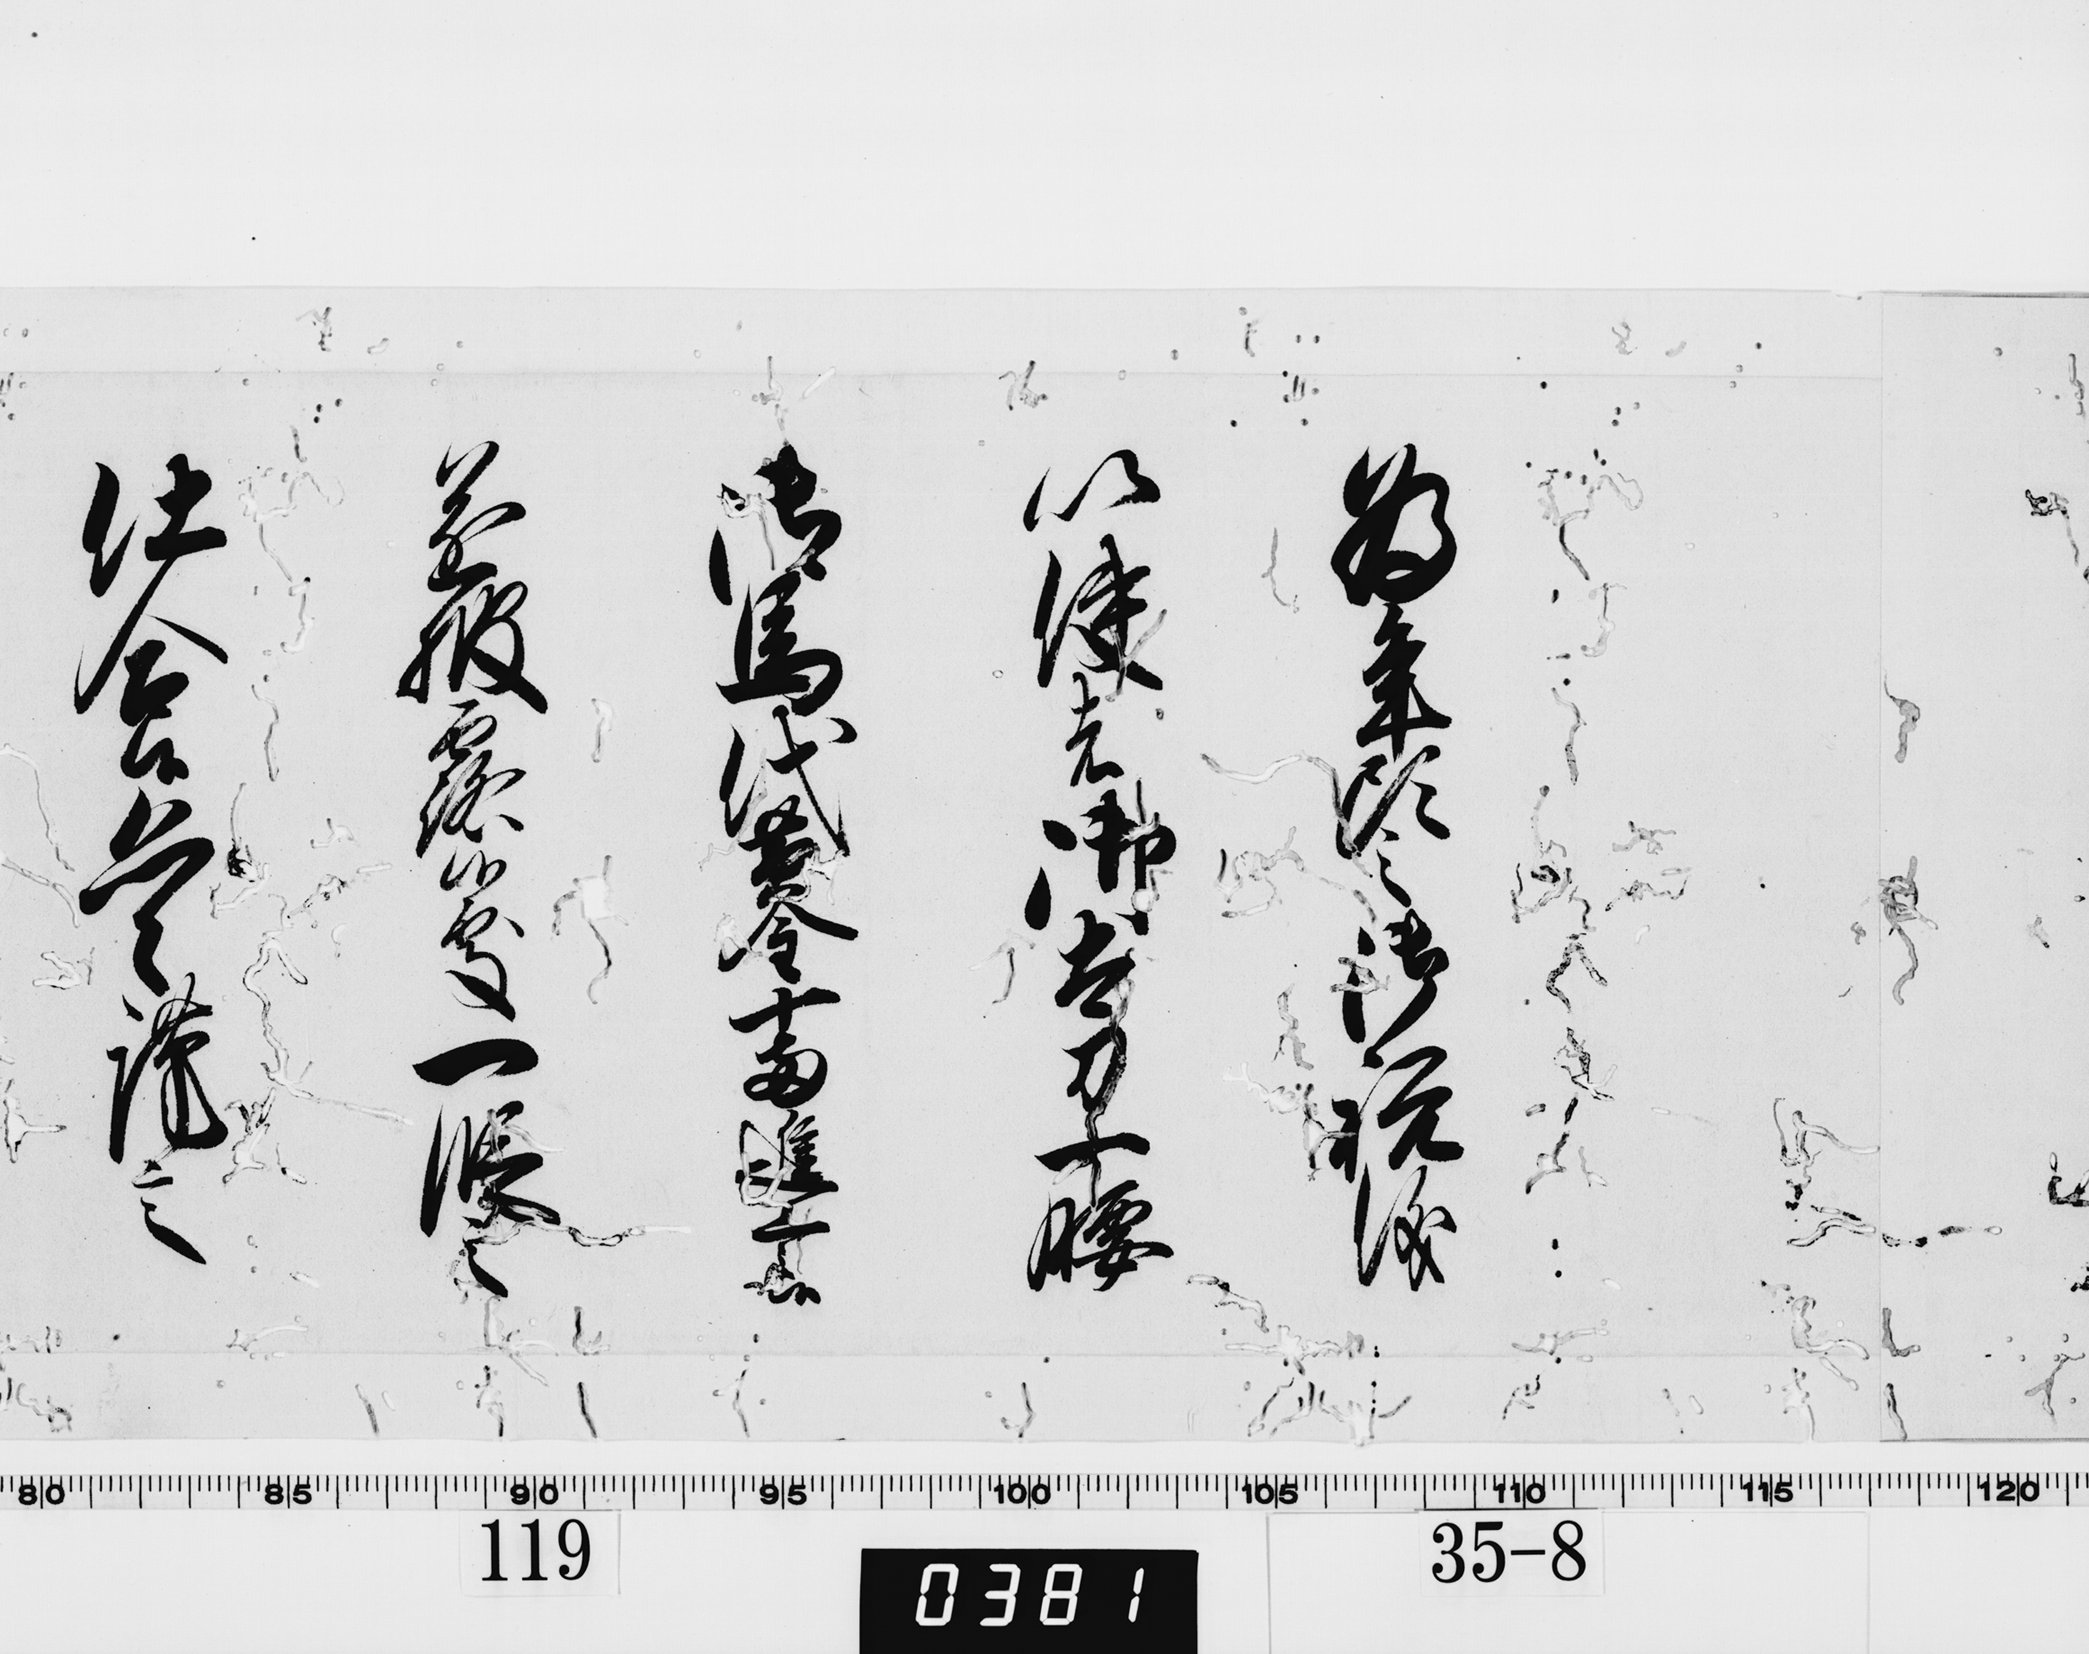 為年頭之御祝儀
以使者御太刀一腰
御馬代黄金十両進上候
並披露候処一段之
仕合候謹言
80 85 90 95 100 105 110 115 120
119
0381
35-8